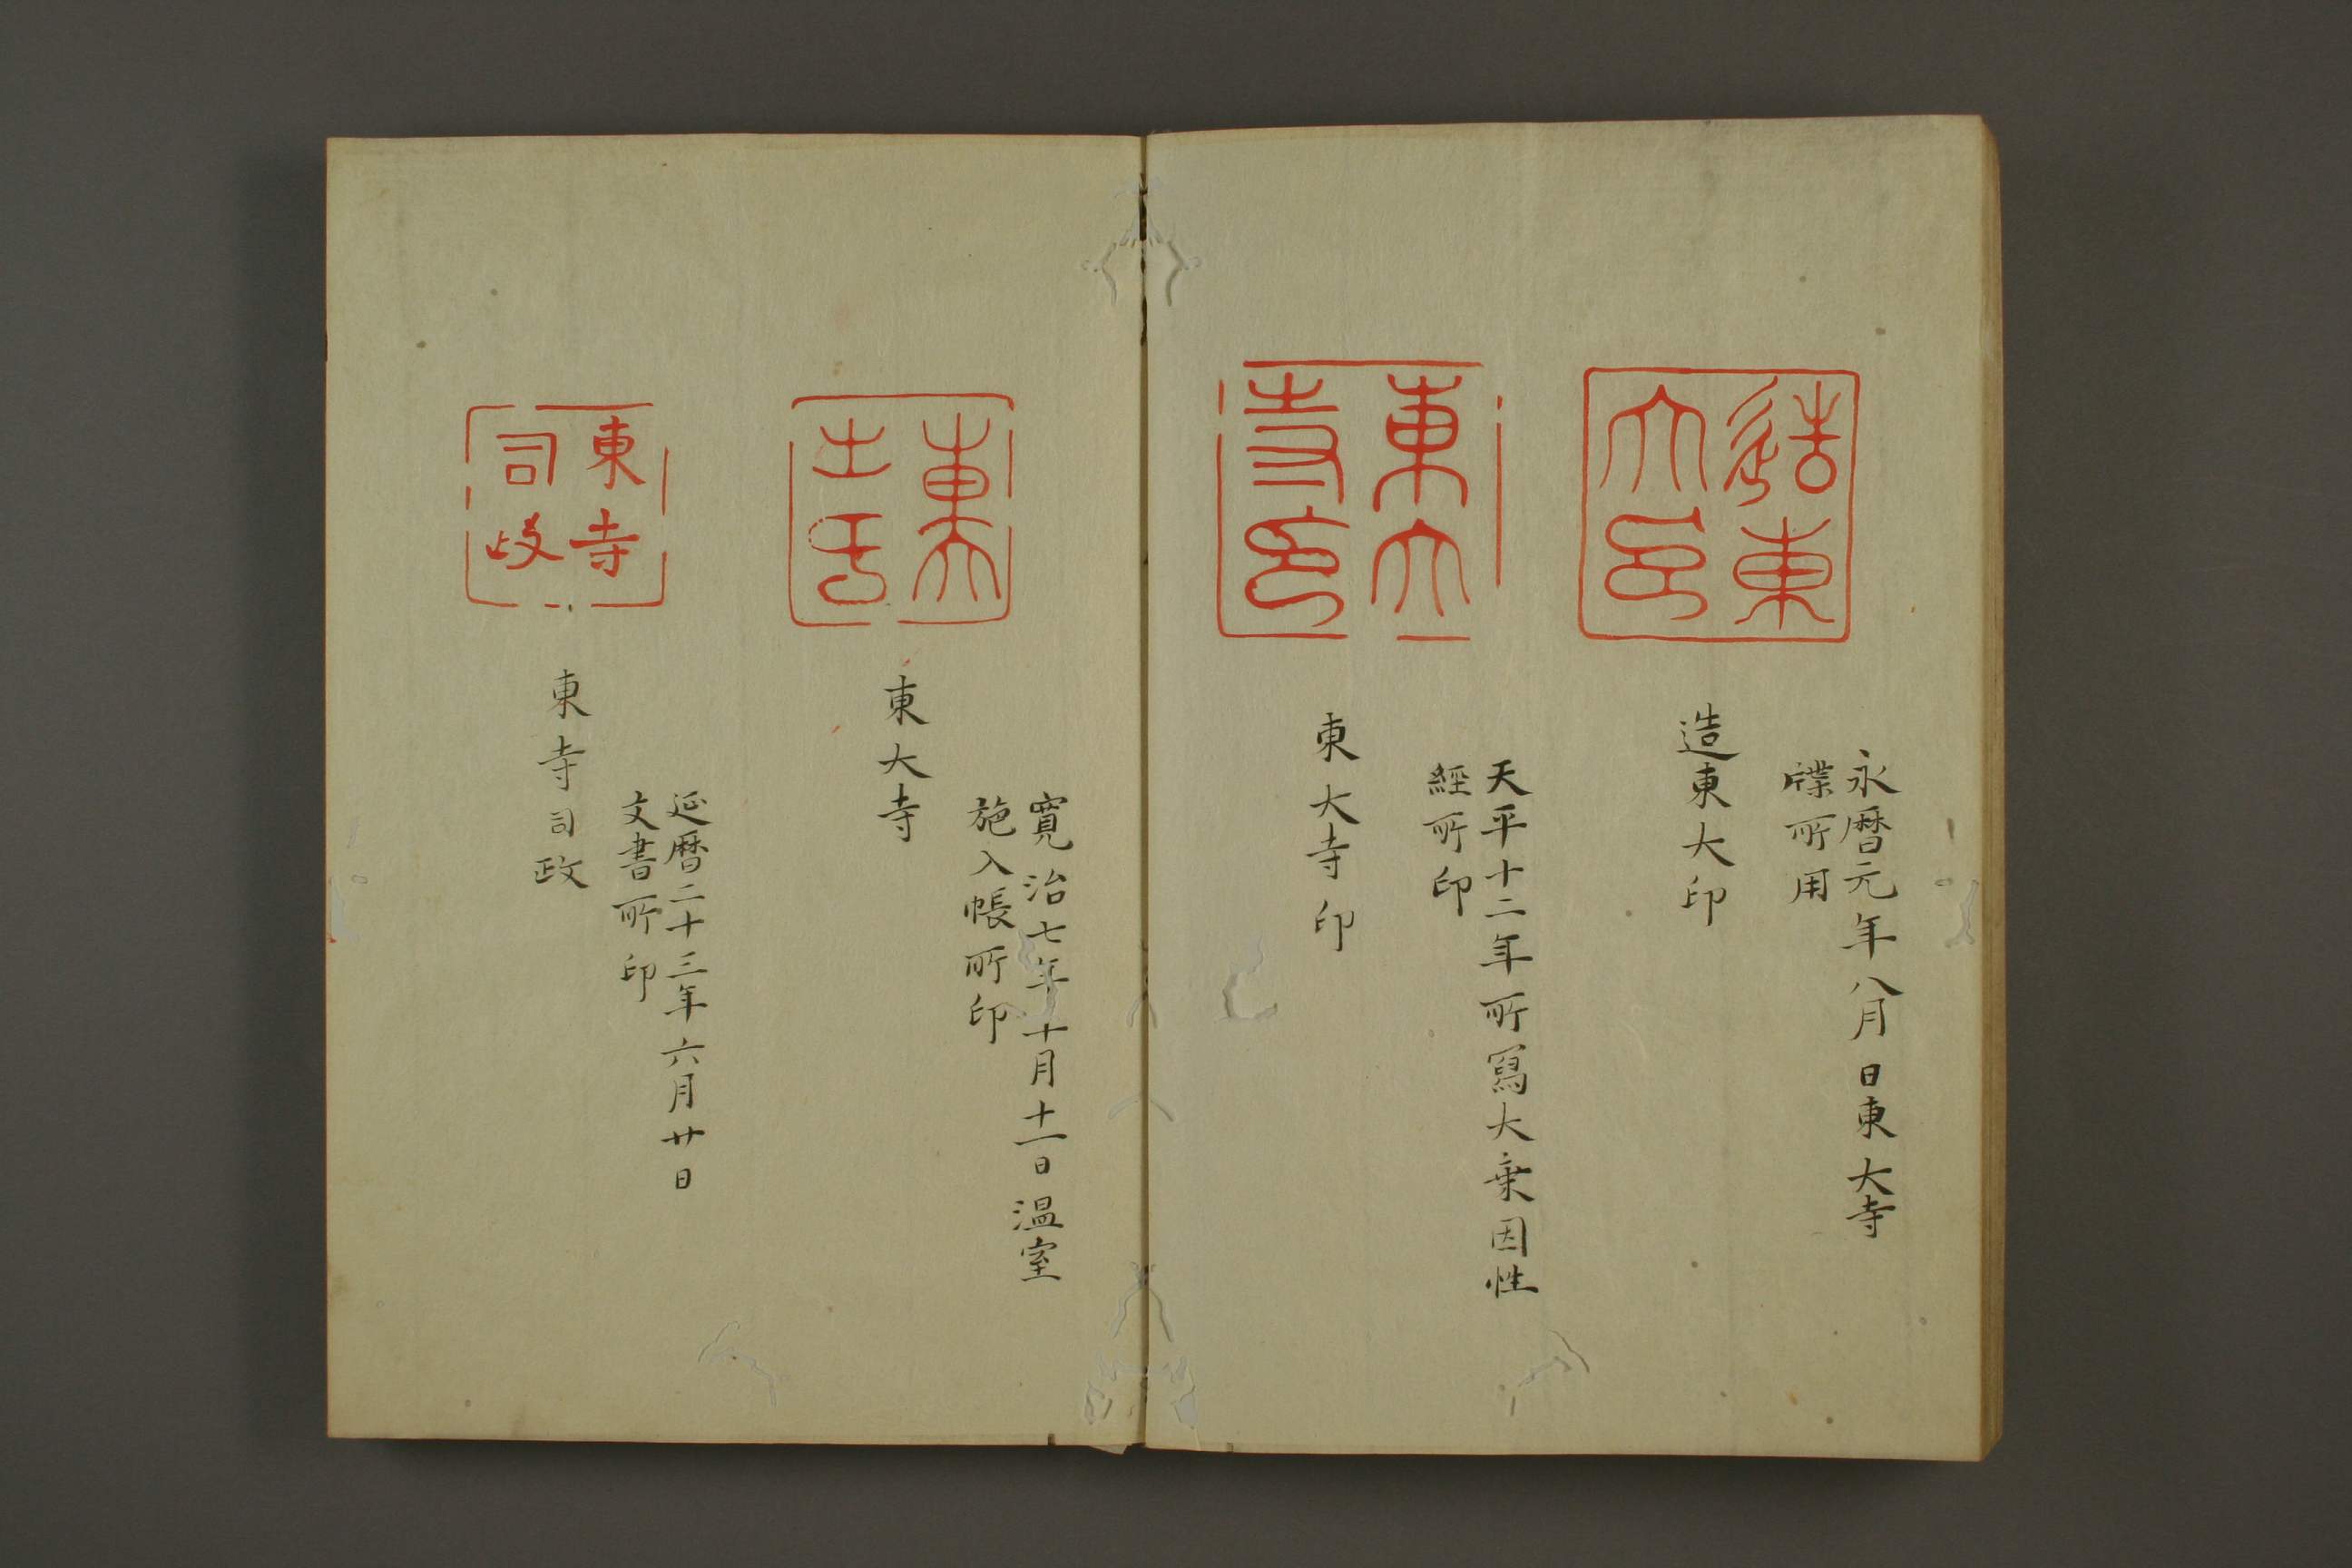 造東
大印
永暦元年八月日東大寺
牒所用
造東大印
東大
寺印
天平十二年所寫大乗因性
經所印
東大寺印
東大
寛治七年十月十一日温室
施入帳所印
東大寺
東寺
司政
延暦二十三年六月廿日
文書所印
東寺司政